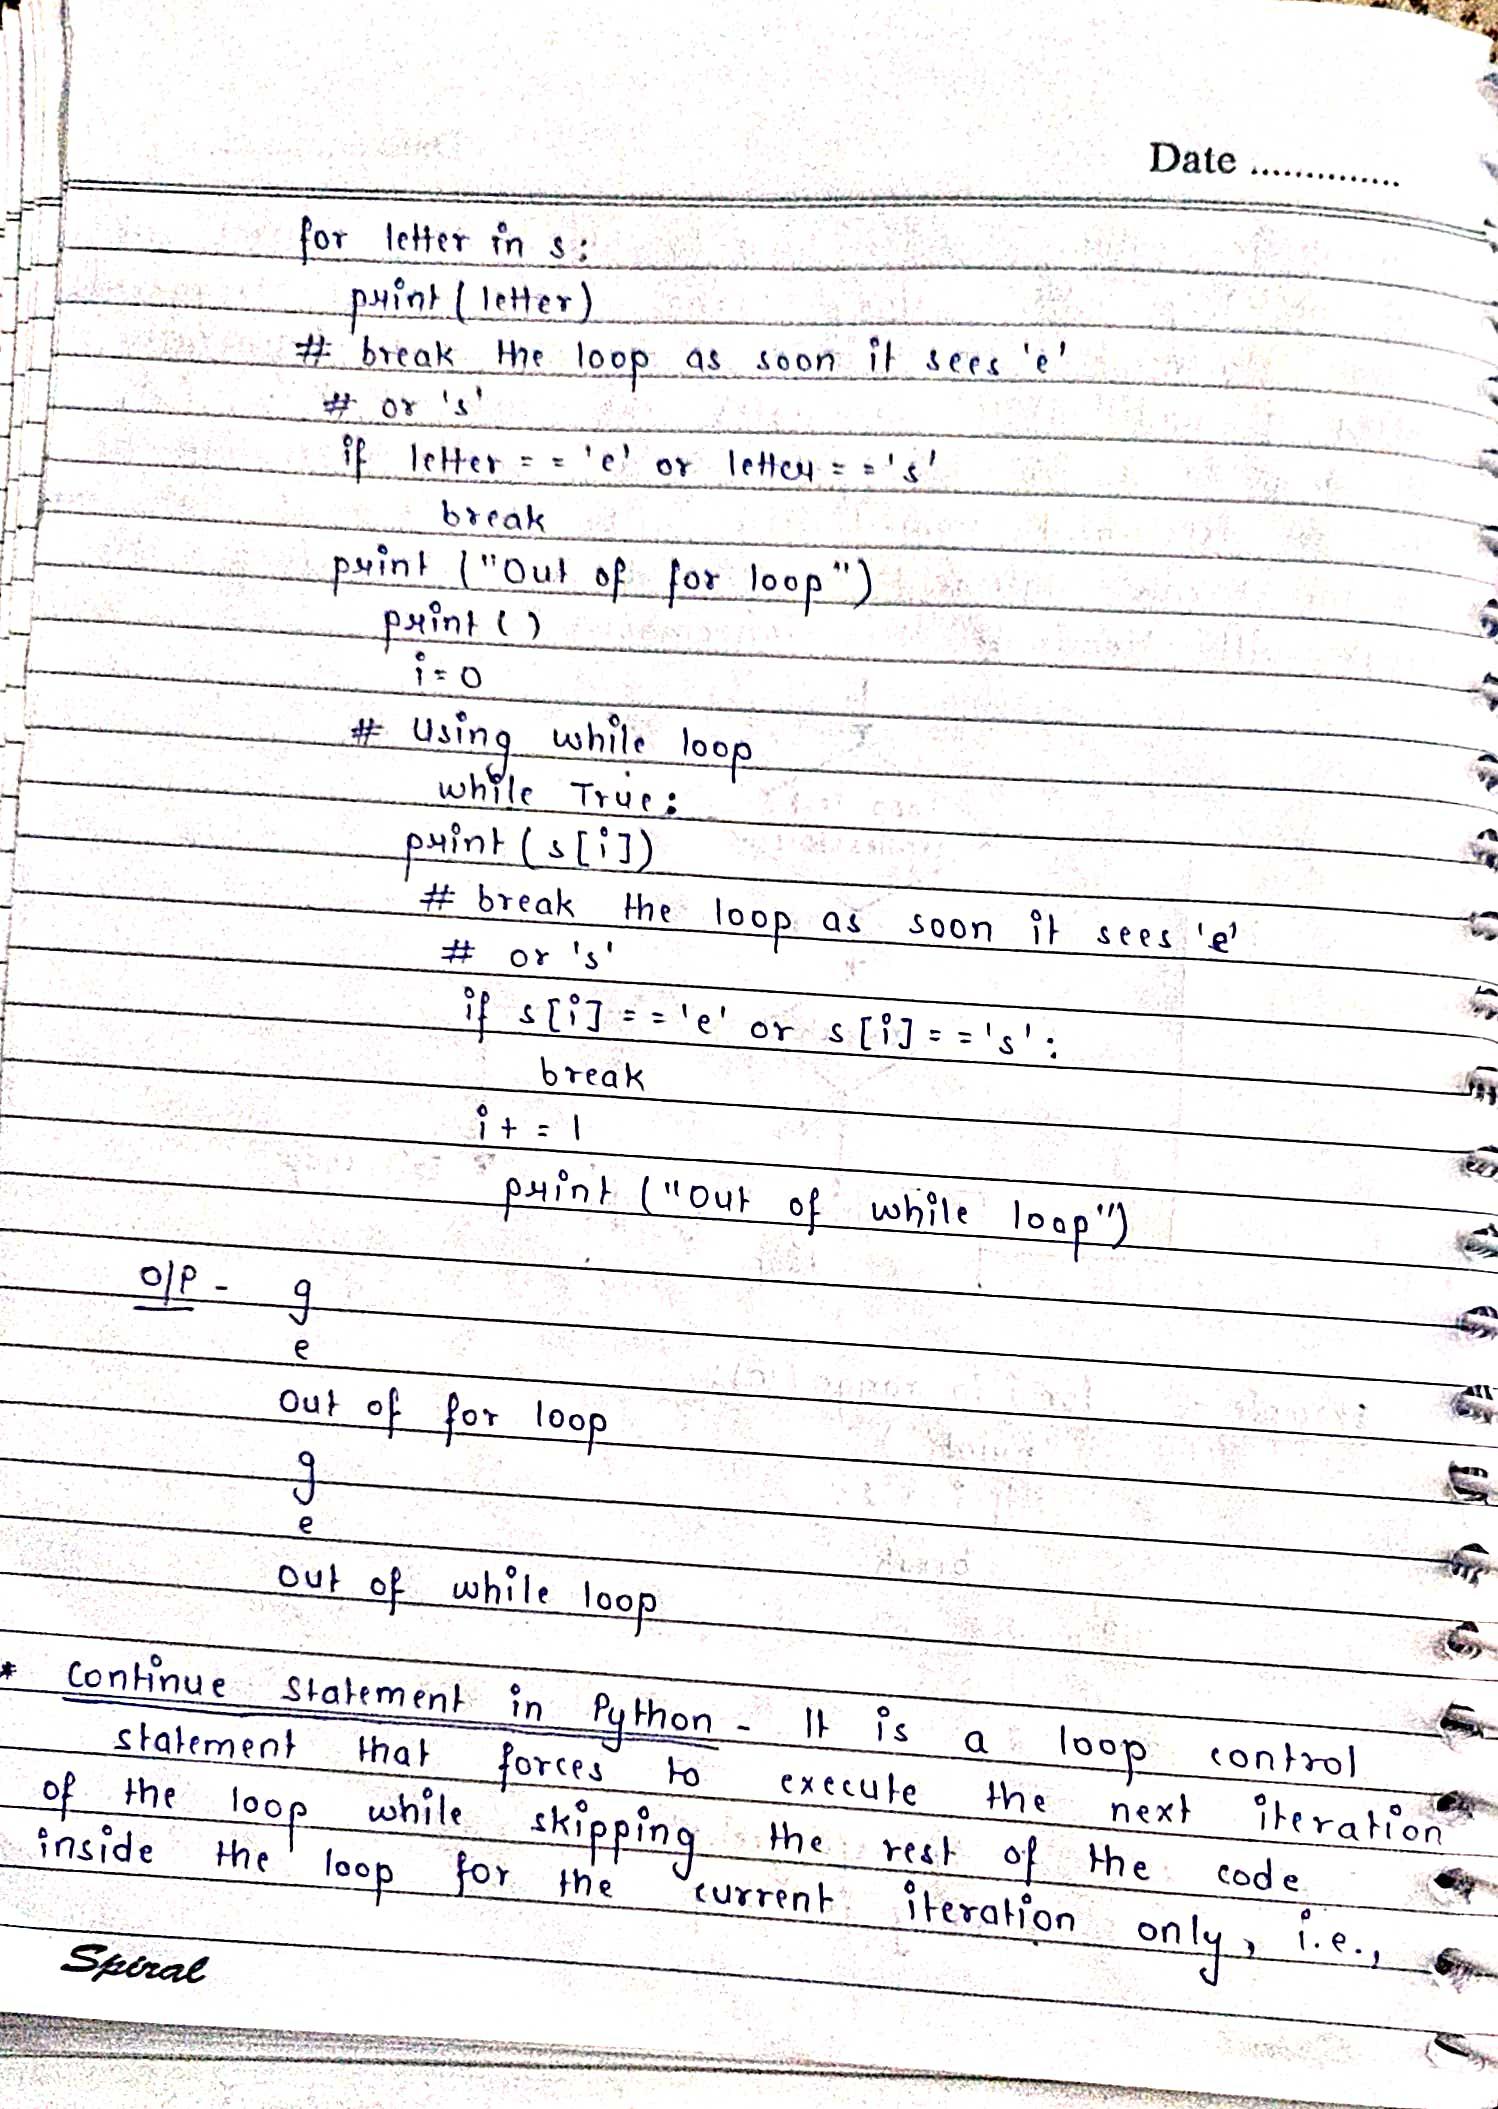 Date ..............
for letter in s:
print (letter)
# break the loop as soon it sees 'e'
# or 's'
if letter == 'e' or letter == 's'
break
print ("Out of for loop")
print ()
i = 0
# Using while loop
while True:
print (s[i])
# break the loop as soon it sees 'e'
# or 's'
if s[i] == 'e' or s[i] == 's':
break
i += 1
print ("Out of while loop")
O/P - g
e
Out of for loop
g
e
Out of while loop
* Continue Statement in Python - It is a loop control
statement that forces to execute the next iteration
of the loop while skipping the rest of the code
inside the loop for the current iteration only, i.e.,
Spiral